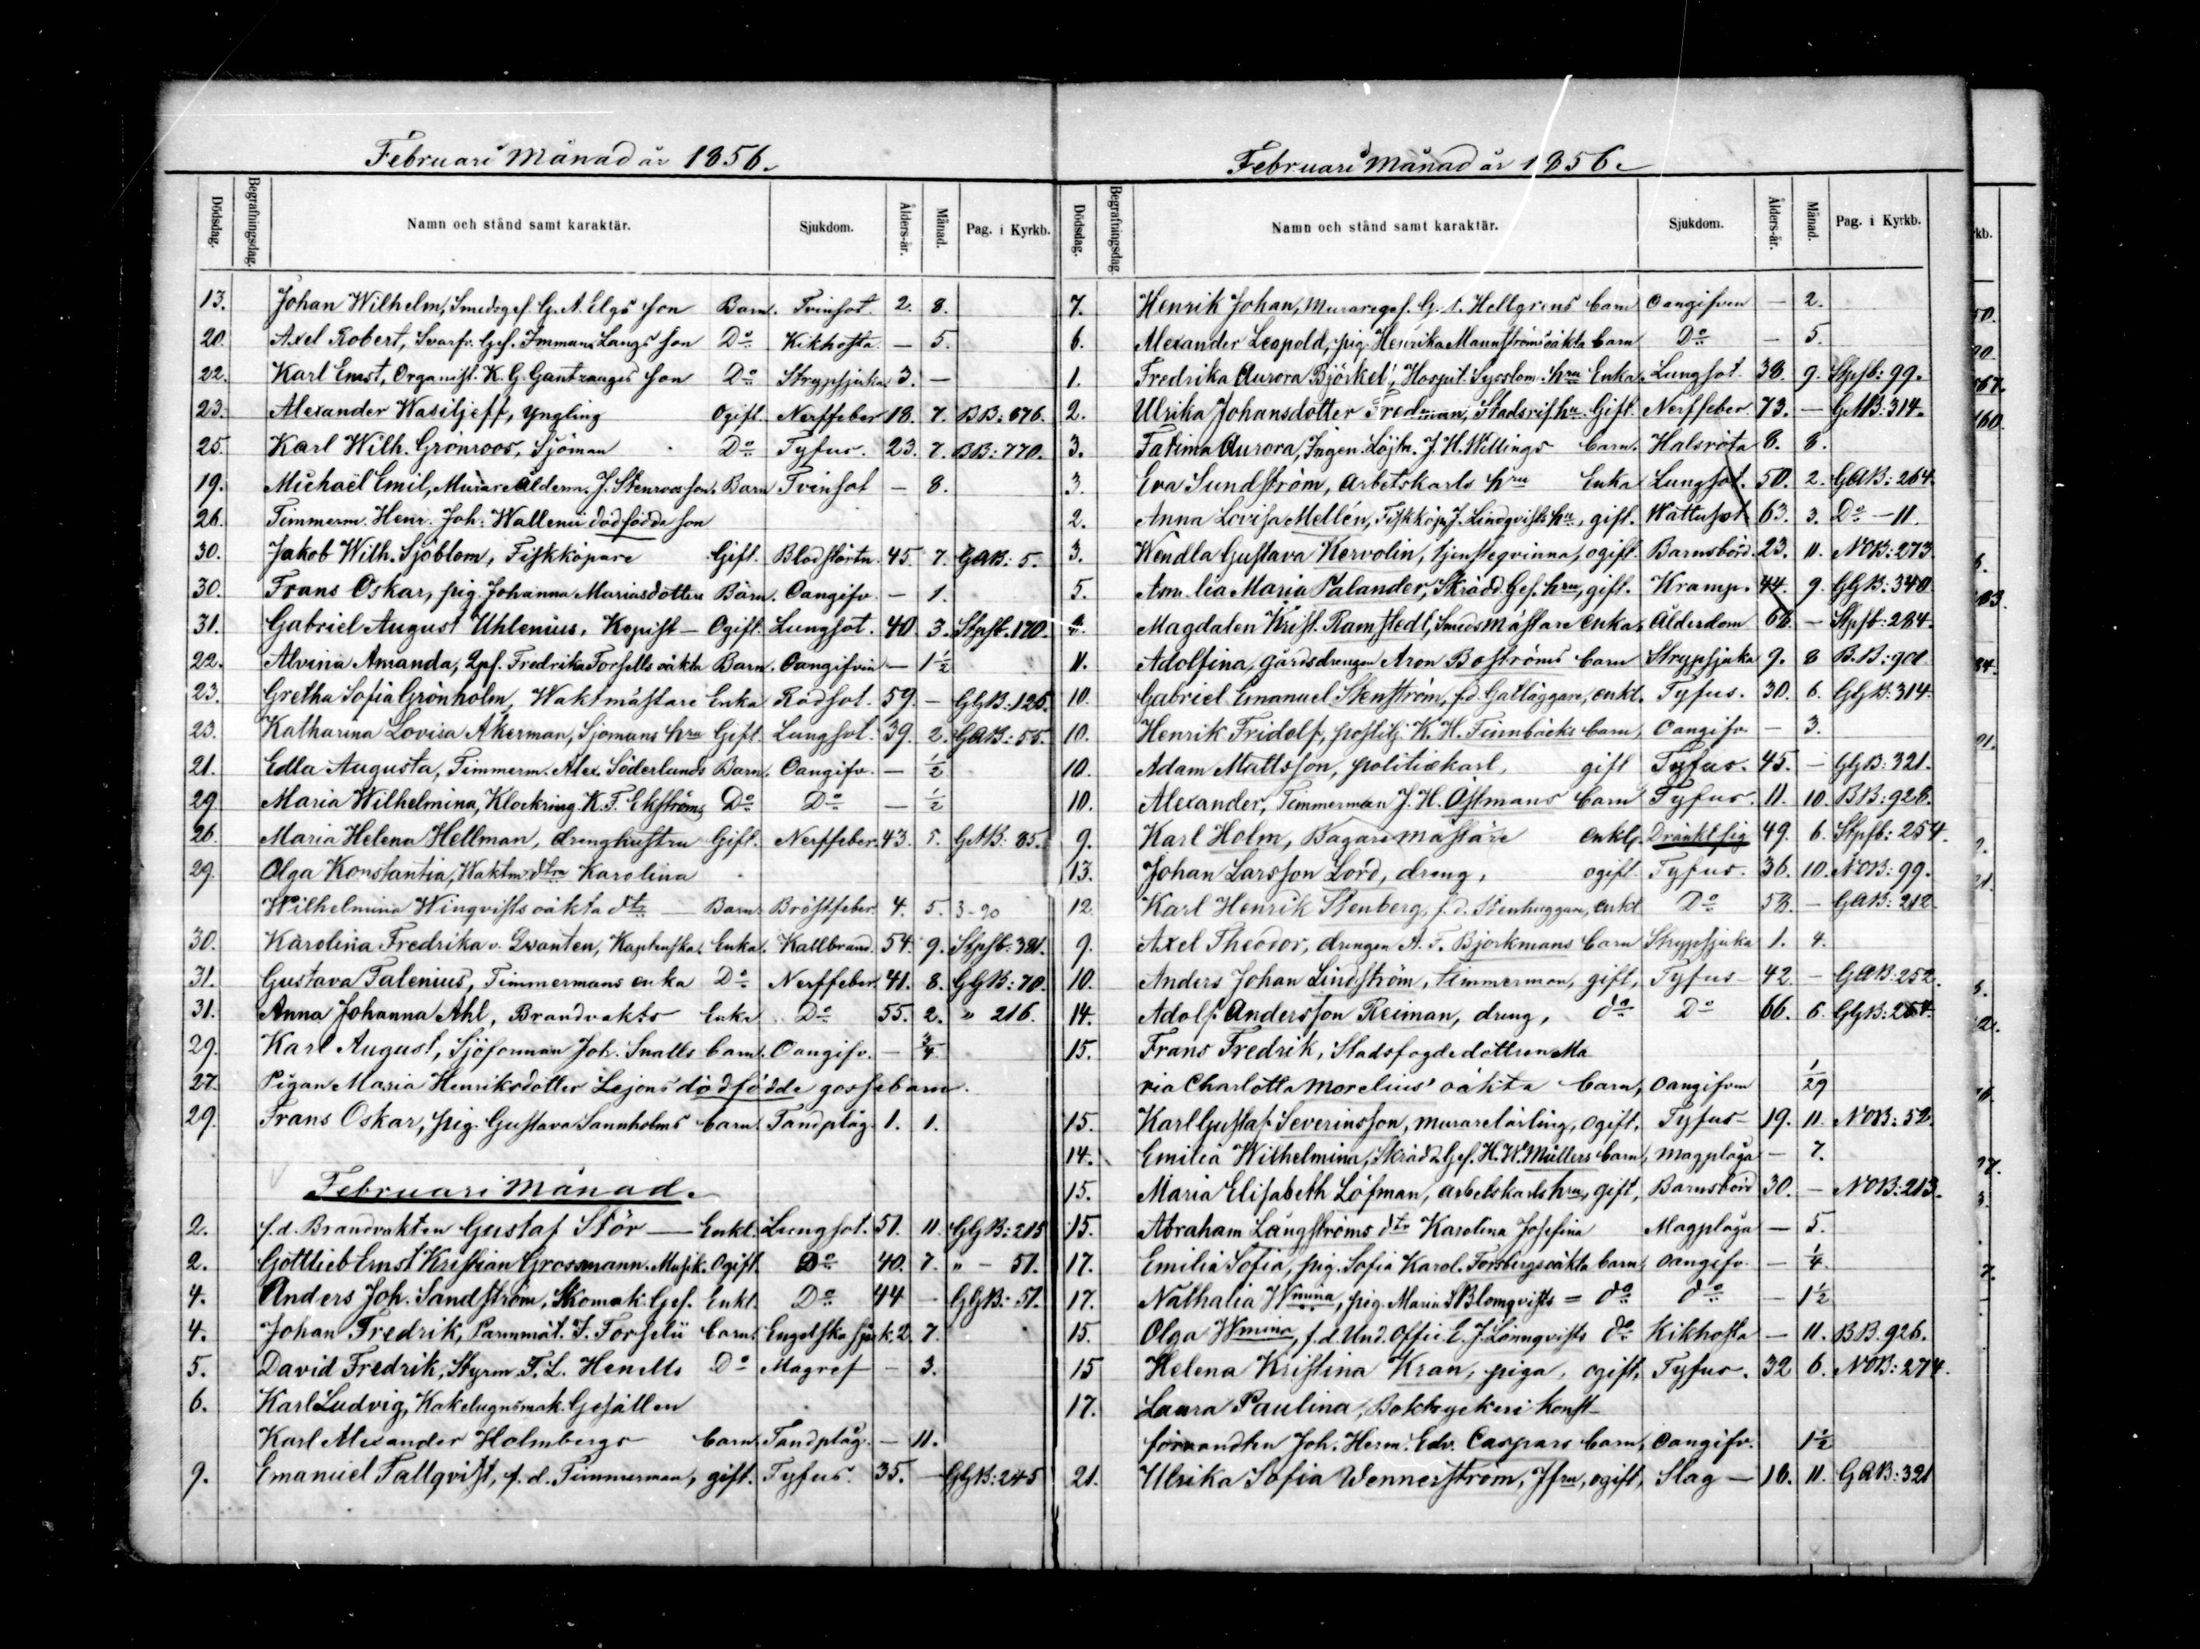 Februari Månad år 1856.
Dödsdag. Begrafningsdag. Namn och stånd samt karaktär. Sjukdom. Ålders-år. Månad. Pag. i Kyrkb.
13. Johan Wilhelm, Smedsges. G. A. Elgs son Barn. Tvinsot. 2. 8.
20. Axel Robert, Svarfv. Ges. Imman. Langs son Do Kikhosta. — 5.
22. Karl Ernst, Organist. K. G. Gantzauges son Do Strypsjuka 3. —
23. Alexander Wasiljeff, Yngling Ogift. Nerffeber 18. 7. BB: 676.
25. Karl Wilh. Grönroos, Sjöman Do Tyfus. 23. 7. BB: 770.
19. Michaël Emil, Murare Ålderm. J. Stenroos son. Barn Tvinsot — 8.
26. Timmerm. Henr. Joh. Wallenii dödfödda son
30. Jakob Wilh. Sjöblom, Fiskköpare Gift. Blodstörtn. 45. 7. GAB: 5.
30. Frans Oskar, pig. Johanna Mariasdotters Barn. Oangifv. — 1.
31. Gabriel August Uhlenius, Kopist — Ogift. Lungsot. 40 3. Stpsb. 170.
22. Alvina Amanda, Qpf. Fredrika Forsells oäkta Barn. Oangifvin — 1 1/2
23. Gretha Sofia Grönholm, Waktmästare Enka Rödsot. 59. — GGB: 125.
23. Katharina Lovisa Åkerman, Sjömans hru Gift. Lungsot. 39. 2. GAB: 55.
21. Edla Augusta, Timmerm. Alex. Söderlunds Barn. Oangifv. — 1/2
29. Maria Wilhelmina, Klockring. K. F. Ekströms Do Do — 1/2
26. Maria Helena Hellman, drenghustru Gift. Nerffeber. 43. 5. GAB: 85.
29. Olga Konstantia, Waktm. dtra Karolina
Wilhelmina Wingvists oäkta dtr — Barn. Bröstfeber. 4. 5. 3-20
30. Karolina Fredrika v. Qvanten, Kaptenska. Enka. Kallbrand. 54. 9. Stpsb: 381.
31. Gustava Talenius, Timmermans enka Do Nerffeber. 41. 8. GGB: 70.
31. Anna Johanna Ahl, Brandvakts Enka Do 55. 2. " 216.
29. Karl August, Sjöforman Joh. Snalls barn. Oangifv. — 3/4.
27. Pigan Maria Henriksdotter Lejons dödfödde gossebarn.
29. Frans Oskar, pig. Gustava Sannholms barn. Tandplåg. 1. 1.
Februari Månad.
2. f.d. Brandvakten Gustaf Stör — Enkl. Lungsot. 51. 11. GGB: 215
2. Gottlieb Ernst Kristian Grossmann. Musik. Ogift. Do 40. 7. " — 51.
4. Anders Joh. Sandström, Skomak. Ges. Enkl. Do 44 — GGB: 51.
4. Johan Fredrik, Parmmät. J. Forselii barn. Engelska sjuk. 2. 7.
5. David Fredrik, Styrm. F. L. Henells Do Magref — 3.
6. Karl Ludvig, Kakelugnsmak. Gesällen
Karl Alexander Holmbergs barn. Tandplåg. — 11.
9. Emanuel Tallqvist, f.d. Timmerman, gift. Tyfus. 35. — GGB: 245
Februari Månad år 1856.
Dödsdag. Begrafningsdag. Namn och stånd samt karaktär. Sjukdom. Ålders-år. Månad. Pag. i Kyrkb.
7. Henrik Johan, Muraregef. G. A. Hellgrens barn Oangifven — 2.
6. Alexander Leopold, pig. Henrika Mannströms oäkta barn Do — 5.
1. Fredrika Aurora Björkel, Hospit. Sysslom. hru Enka. Lungsot. 38. 9. Stpsb: 99.
2. Ulrika Johansdotter Fredman, Stadsrif. hu. Gift. Nerffeber. 73. — GAB: 314.
3. Fatima Aurora, Ingen. Löjtn. J. H. Willings barn. Halsröta 8. 8.
3. Eva Sundström, Arbetskarls hru Enka Lungsot. 50. 2. GAB: 264.
2. Anna Lovisa Mellén, Fiskköp. J. Lindqvists hu, gift. Wattusot 63. 3. Do — 11.
3. Wendla Gustava Kervolin, tjensteqvinna, ogift. Barnsbörd. 23. 11. NOB: 273.
5. Amalia Maria Palander, Skrädd. Ges. hru, gift. Kramp. 44. 9. GGB: 340.
Magdalen Krist. Ramstedt, Smedsmästare enka, Ålderdom 68 — Stpsb: 284.
11. Adolfina, gårdsdrengen Aron Boströms barn Strypsjuka 9. 8 B.B: 901.
10. Gabriel Emanuel Stenström, f.d. Gatläggare, enkl. Tyfus. 30. 6. GGB: 314.
10. Henrik Fridolf, postilj. K. H. Finnbäcks barn, Oangifv. — 3.
10. Adam Mattsson, politiekarl, gift Tyfus. 45. — GGB: 321.
10. Alexander, Timmerman J. H. Östmans barn Tyfus. 11. 10. BB: 928.
9. Karl Holm, Bagaremästare enkl. Dränkt sig 49. 6. Stpsb: 254.
13. Johan Larsson Lord, dreng, ogift Tyfus. 36. 10. NOB: 99.
12. Karl Henrik Stenberg, f.d. Stenhuggare, enkl. Do 58. — GAB: 212
9. Axel Theodor, drengen A. F. Björkmans barn Strypsjuka 1. 4.
10. Anders Johan Lindström, timmerman, gift, Tyfus — 42. — GAB: 252.
14. Adolf Andersson Reiman, dreng, do Do 66. 6. GGB: 254.
15. Frans Fredrik, Stadsfogdedottren Ma
ria Charlotta Morelius' oäkta barn, Oangifven 1/29
15. Karl Gustaf Severinsson, murarelärling, ogift, Tyfus — 19. 11. NOB: 52.
14. Emilia Wilhelmina, Skrädd. Ges. H. W. Müllers barn, Magplåga — 7.
15. Maria Elisabeth Löfman, arbetskarls hru, gift, Barnsbörd 30. — NOB: 213.
15. Abraham Långströms dtr Karolina Josefina Magplåga — 5.
17. Emilia Sofia, pig. Sofia Karol. Forsbergs oäkta barn, Oangifv. — 1/4.
17. Nathalia Wmina, pig. Maria S Blomqvists = do do — 1 1/2
15. Olga Wmina, f.d. Und. Offic. E. J. Lönnqvists do Kikhosta — 11. BB. 926.
15 Helena Kristina Kran, piga, ogift, Tyfus. 32 6. NOB: 274.
17. Laura Paulina, Boktryckeri konst-
förvandten Joh. Herm. Edv. Caspars barn, Oangifv. 1 1/2
21. Ulrika Sofia Wennerström, Jfru, ogift, Slag — 16. 11. GAB: 321